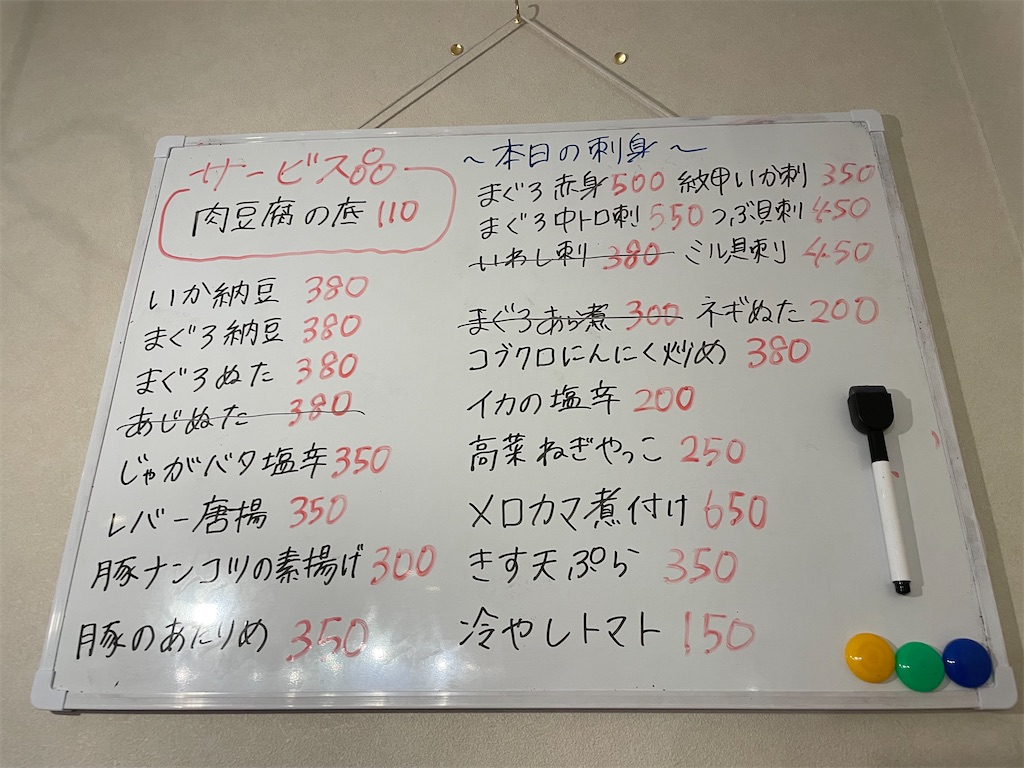 サービス品
肉豆腐の底 110
いか納豆 380
まぐろ納豆 380
まぐろぬた 380
あじぬた 380
じゃがバタ塩辛 350
レバー唐揚 350
豚ナンコツの素揚げ 300
豚のあたりめ 350
～本日の刺身～
まぐろ赤身 500 紋甲いか刺 350
まぐろ中トロ刺 550 つぶ貝刺 450
いわし刺 380 ミル貝刺 450
まぐろあら煮 300 ネギぬた 200
コブクロにんにく炒め 380
イカの塩辛 200
高菜ねぎやっこ 250
メロカマ煮付け 650
きす天ぷら 350
冷やしトマト 150